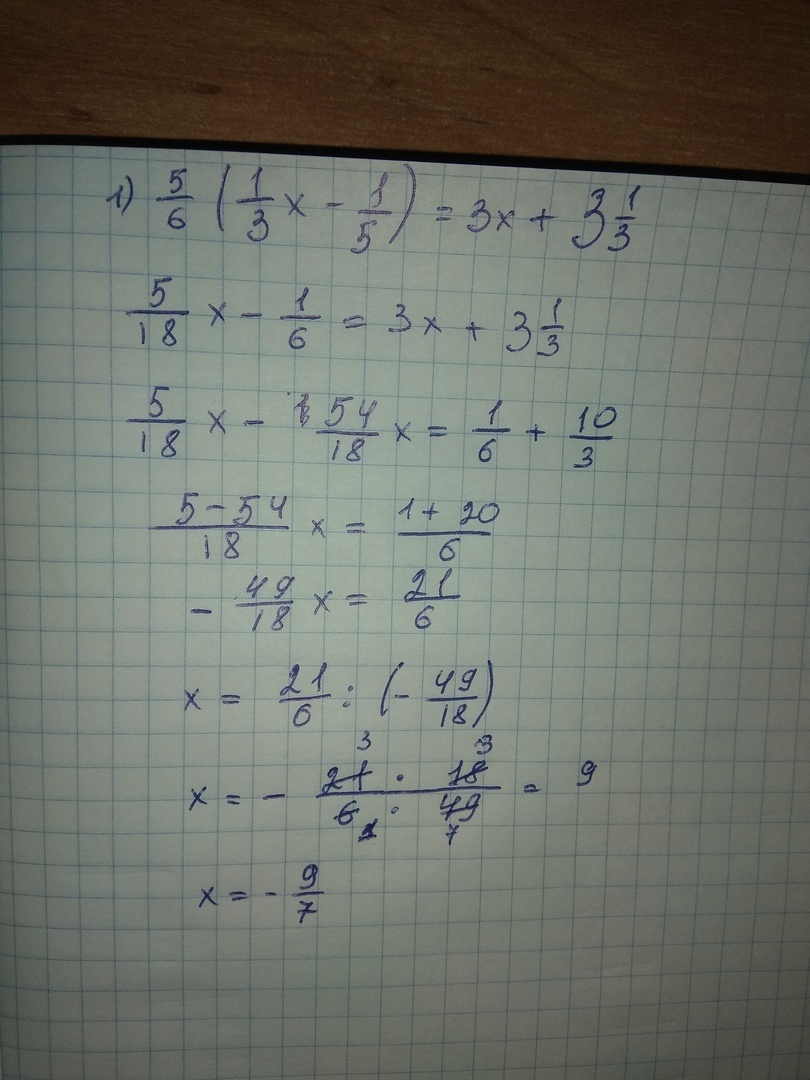 1) 5/6 (1/3 x - 1/5) = 3x + 3 1/3
5/18 x - 1/6 = 3x + 3 1/3
5/18 x - 54/18 x = 1/6 + 10/3
5-54/18 x = 1+20/6
- 49/18 x = 21/6
x = 21/6 : (- 49/18)
3 3
x = - 21 · 18/6 · 49 = 9
1 7
x = - 9/7